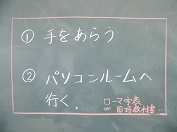 ① 手をあらう
② パソコンルームへ
行く.
ローマ字表